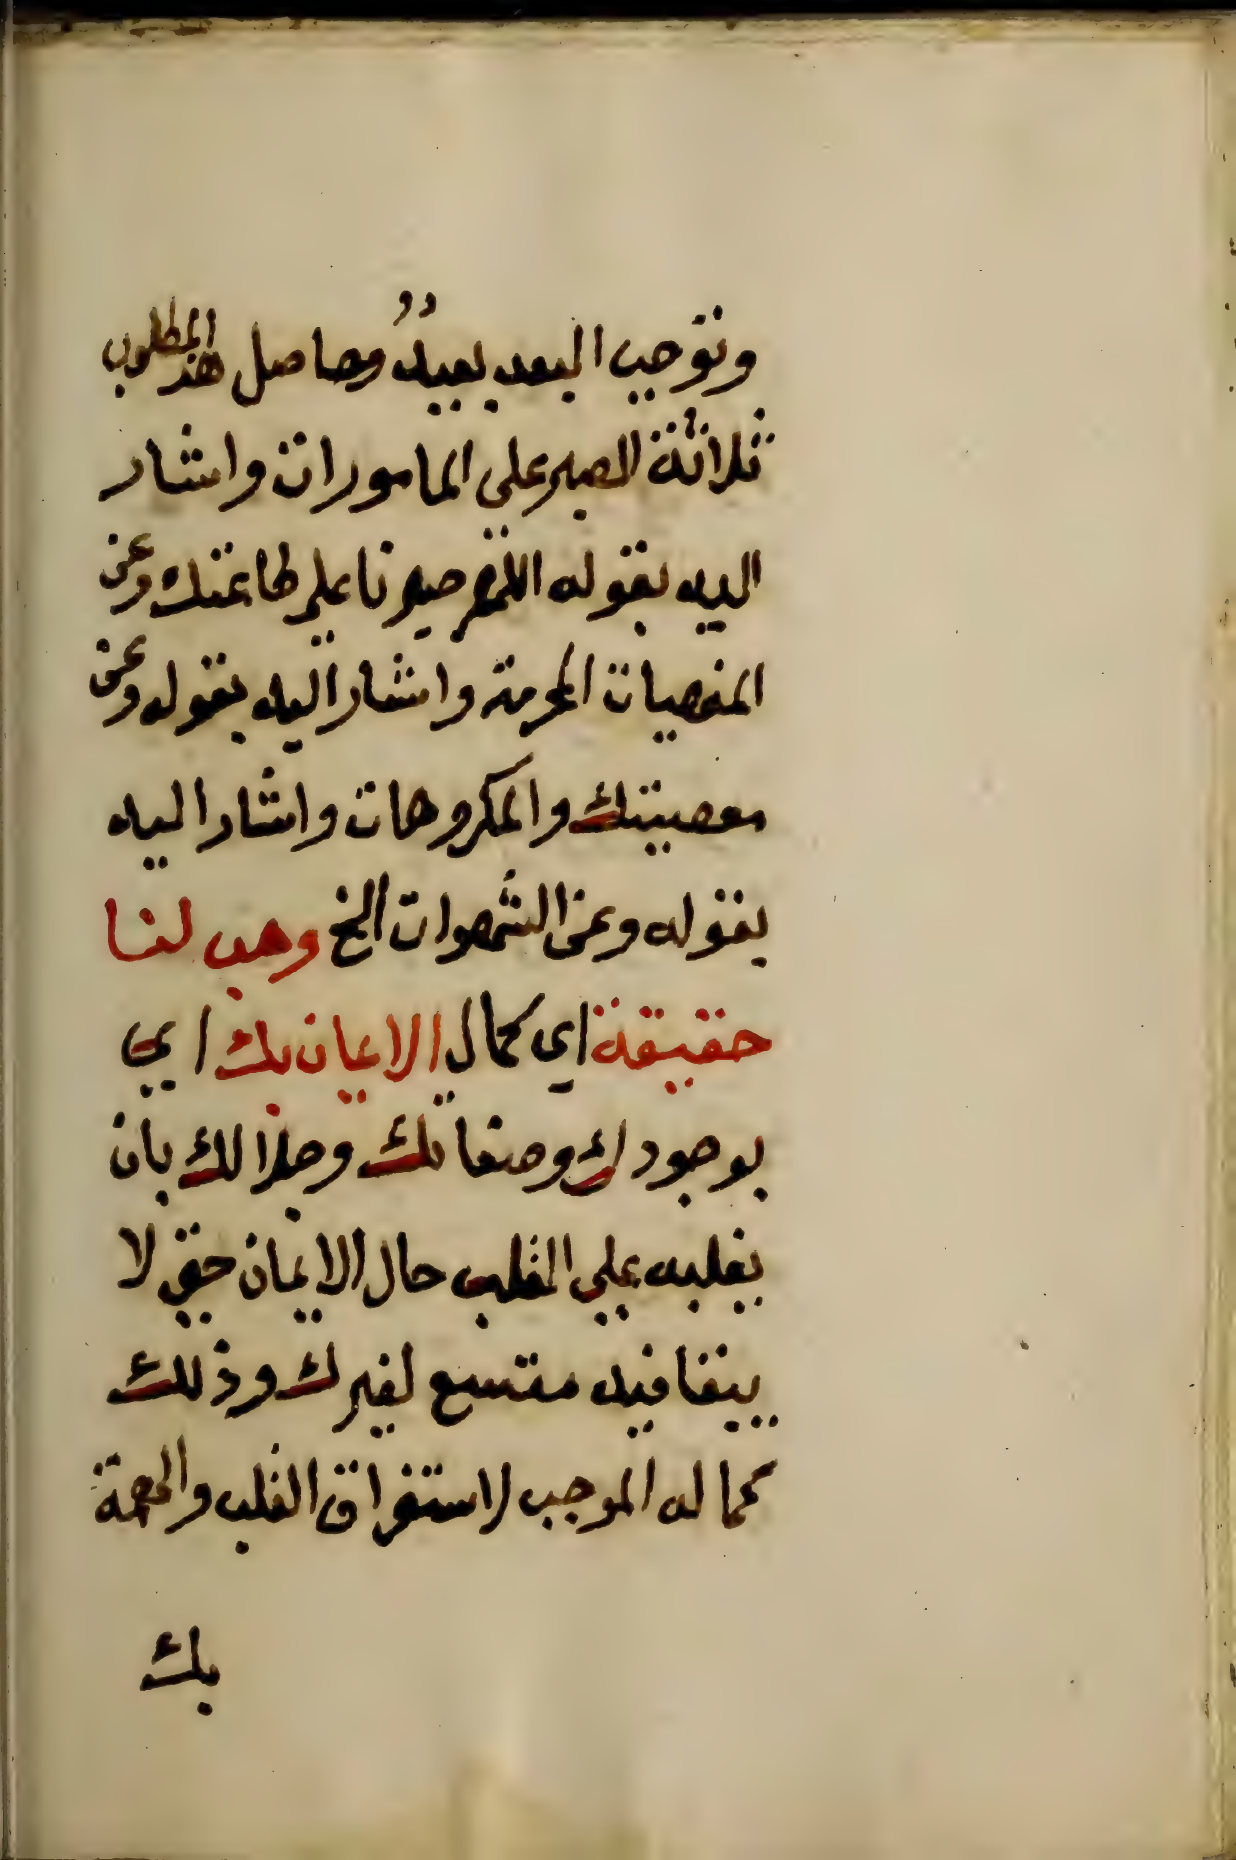 وتوجب البعد بعيدٌ وحاصل هذا المطلوب
ثلاثة الصبر على المامورات واشار
اليه بقوله اللهم صبرنا علي طاعتك وعن
المنهيات المحرمة واشار اليه بقوله وعن
معصيتك والمكروهات واشار اليه
بقوله وعن الشهوات الخ وهب لنا
حقيقة اي كمال الايمان بك اي
بوجودك وصفاتك وجلالك بان
يغلبه علي القلب حال الايمان حتي لا
يبقا فيه متسع لغيرك وذلك
كماله الموجب لاستغراق القلب والهمة
بك